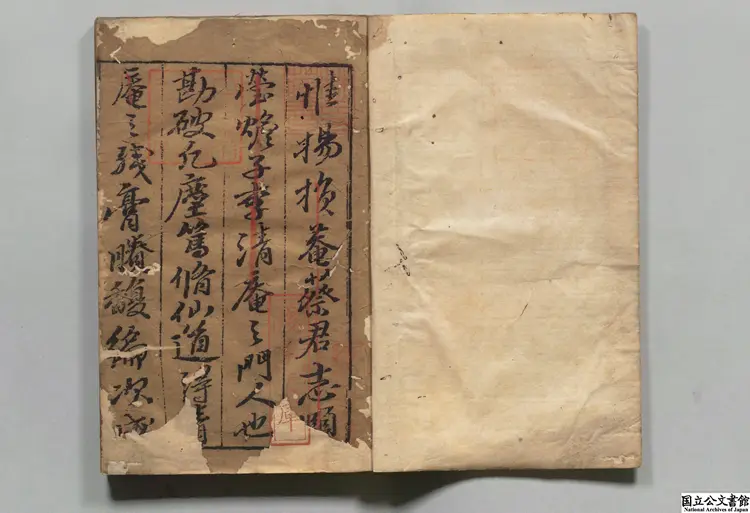 惟揚損菴蔡君志頤
瑩蟾子李清庵之門人也
勘破凡塵篤脩仙道得清
庵之殘膏賸馥編次成
国立公文書館
National Archives of Japan